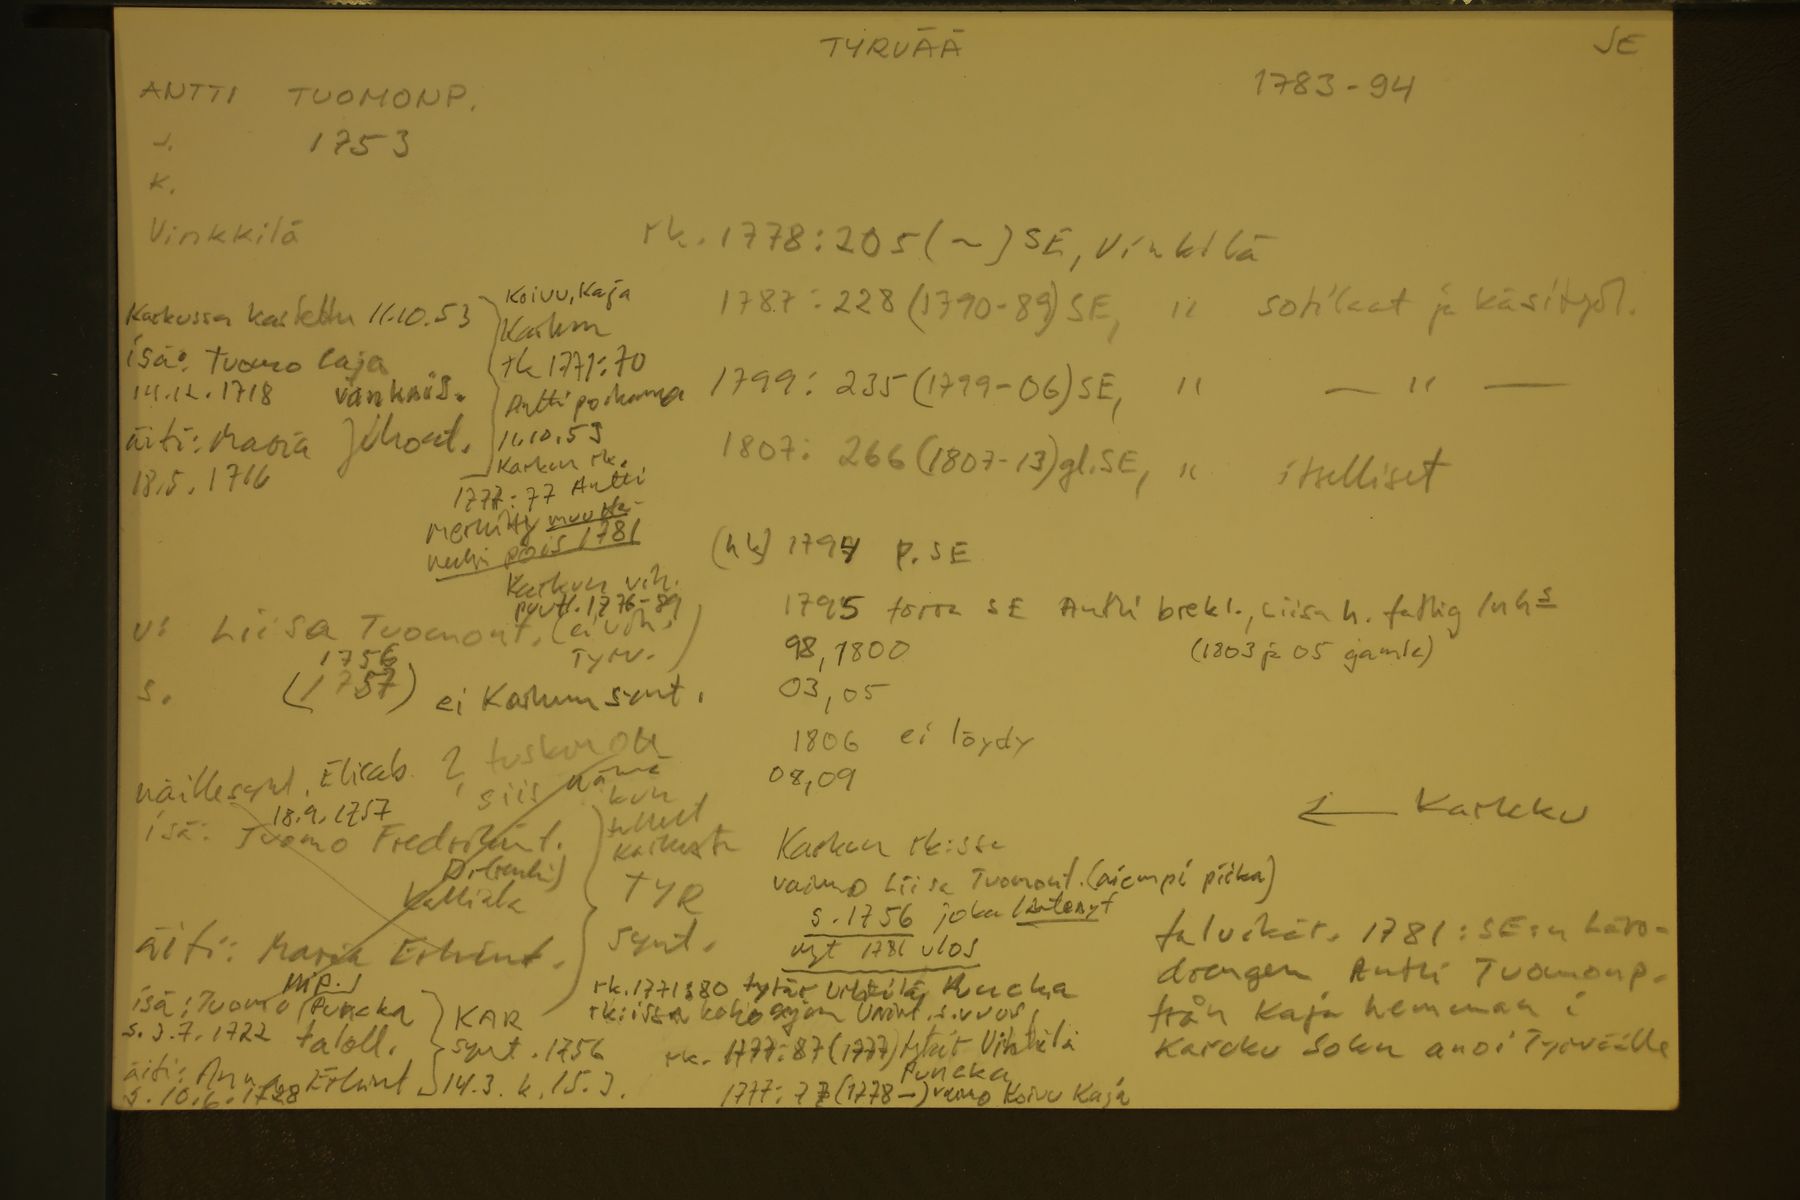 TYRVÄÄ
SE
ANTTI TUOMONP.
1783-94
s. 1753
k.
Vinkkilä
rk. 1778: 205 (~) SE, Vinkilä
1787: 228 (1790-89) SE, " sotilaat ja käsityöl.
1799: 235 (1799-06) SE, " — " —
1807: 266 (1807-13) gl. SE, " itselliset
Karkussa kastettu 11.10.53
isä: Tuomo Caja
14.12.1718
äiti: Maria Juhont.
18.5.1716
Koivu, Kaja
Karkun
rk 1771: 70
Antti poikana
11.10.53
Karkun rk.
1777: 77 Antti
merkitty muutta-
neeksi pois 1781
Karkun vih.
puutt. 1776-89
(hk) 1794 p. SE
1795 torra SE Antti brekl., Liisa h. fattig Inhs
98, 1800 (1803 ja 05 gamla)
03, 05
1806 ei löydy
08, 09
v: Liisa Tuomont. (ei vih. Tyrv.)
1756
s. (1757) ei Karkun synt.
näille synt. Elisab. ? tuskin ole
18.9.1757 siis nämä
isä: Tuomo Fredrikint.
Kalliala
äiti: Maria Erkint.
kun
tulleet
Karkusta
TYR
synt.
← Karkku
Karkun rk:ssa
vaimo Liisa Tuomont. (aiempi piika)
s. 1756 joka lähtenyt
nyt 1781 ulos
rk. 1771: 80 tytär Vihtilä, Puncka
rk. 1777: 87 (1777) tytär Vihtilä
Puncka
1777: 77 (1778-) vaimo Koivu Kaja
isä: Tuomo Mp. Puncka
s. 3.7.1722 taloll.
äiti: Anna Erkint
s. 10.6.1728
KAR
synt. 1756
14.3. k. 15.3.
talvikär. 1781: SE:n
drengen Antti Tuomonp.
från Kaja hemman i
Karcku Soku anoi Tyrväälle